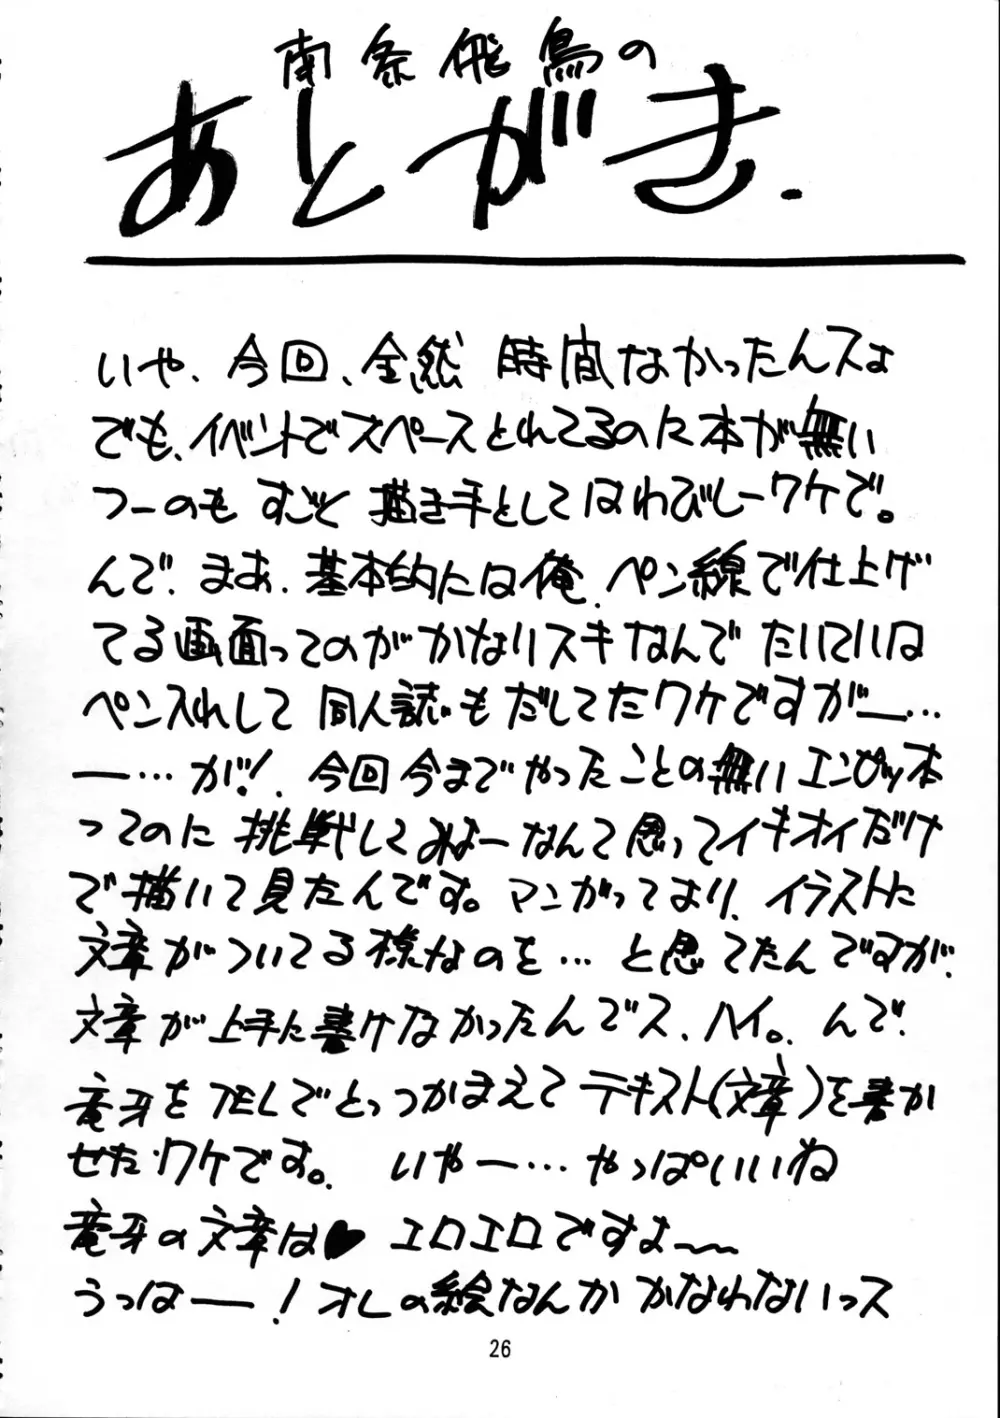 南条飛鳥の
あとがき.
いや、今回、全然 時間なかったんスよ
でも、イベントでスペースとれてるのに本が無い
つーのも すごく 描き手としてはわびしーワケで。
んで、まあ、基本的には俺、ペン線で仕上げ
てる画面ってのがかなりスキなんで たいていは
ペン入れして 同人誌もだしてたワケですがー…
ー…が!、今回今までやったことの無いエンピツ本
ってのに 挑戦してみよーなんて思ってイキオイだけ
で描いて見たんです。マンガってより、イラストに
文章がついてる様なのを… と思ってたんですが、
文章が上手に書けなかったんでス、ハイ。んで、
竜牙をTELでとっつかまえてテキスト(文章)を書か
せたワケです。 いやー…やっぱいいね
竜牙の文章は♥ エロエロですよ〜
うっはー!オレの絵なんか かなわないっス
26